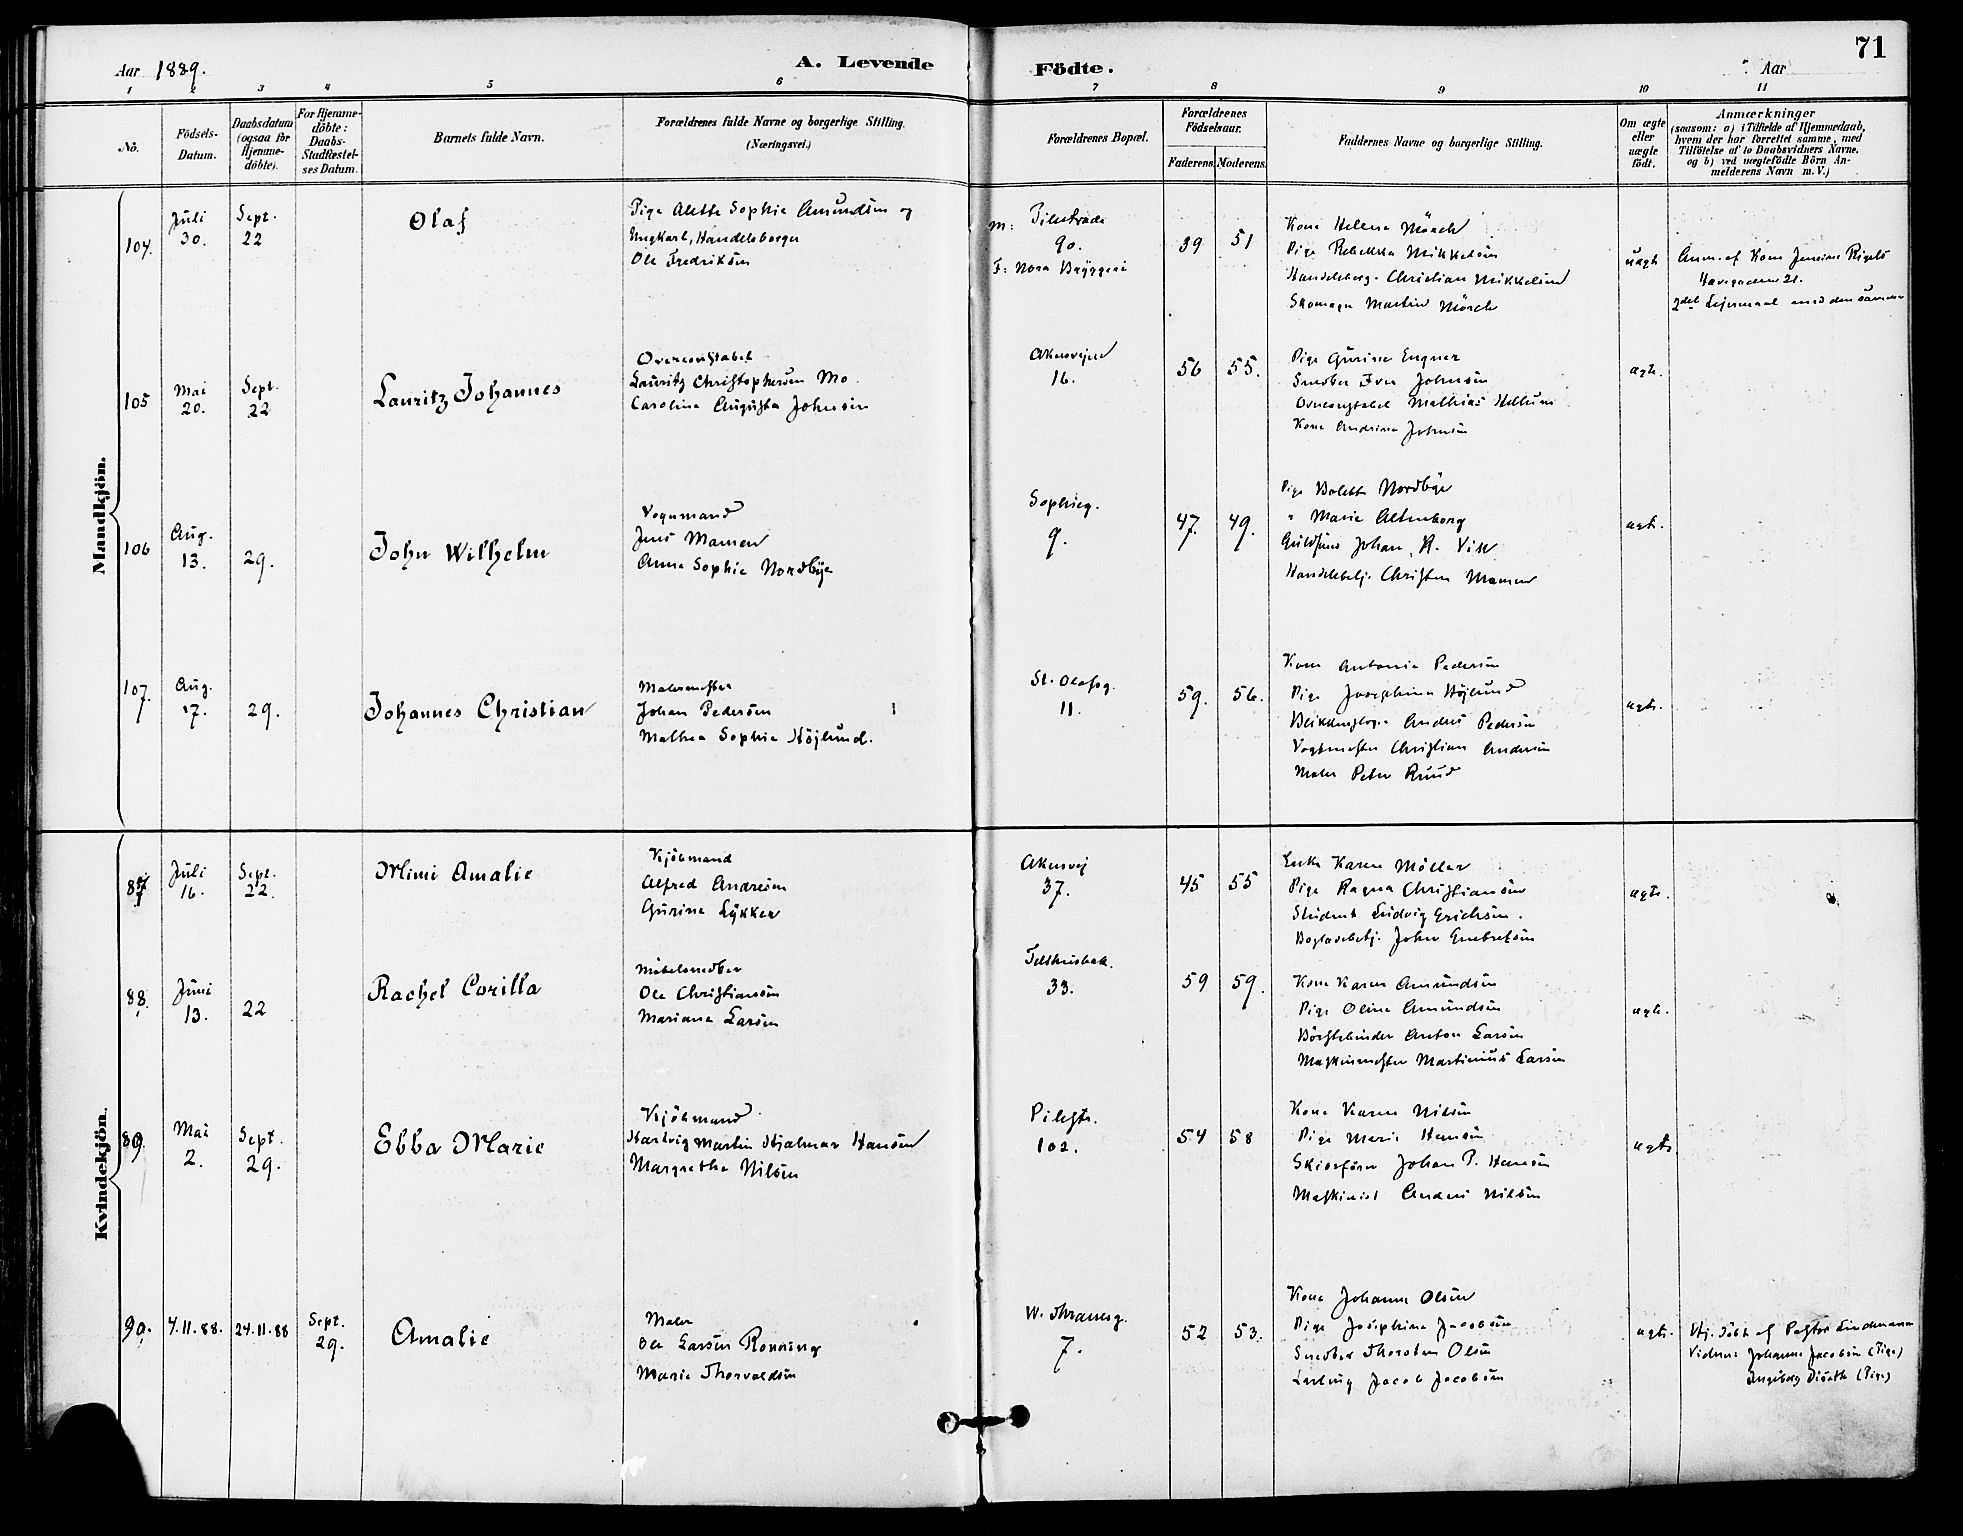 71
Aar 1889.
A. Levende Födte.
Aar
1 2 3 4 5 6 7 8 9 10 11
No.
Födsels-
Datum.
Daabsdatum
(ogsaa för
Hjemme-
döbte).
For Hjemme-
döbte:
Daabs-
Stadfæstel-
ses Datum.
Barnets fulde Navn.
Forældrenes fulde Navne og borgerlige Stilling.
(Næringsvei.)
Forældrenes Bopæl.
Forældrenes
Födselsaar.
Faderens. Moderens.
Faddernes Navne og borgerlige Stilling.
Om ægte
eller
uægte
födt.
Anmærkninger
(saasom: a) i Tilfælde af Hjemmedaab,
hvem der har forrettet samme, med
Tilföielse af to Daabsvidners Navne,
og b) ved uægtefödte Börn An-
melderens Navn m. V.)
Mandkjön.
104.
Juli
30.
Sept.
22
Olaf
Pige Alette Sophie Amundsen og
Ungkarl, Handelsborger
Ole Fredriksen
M: Pilestræde
90.
F: Nora Bryggeri
39 51
Kone Helene Mörch
Pige Rebekka Mikkelsen
Handelsborg. Christian Mikkelsen
Skomager Martin Mörch
uægte
Anm. af Kone Jensine Rigels
21.
2det Leiermaal med den samme
105
Mai
20.
Sept.
22
Lauritz Johannes
Overconstabel
Lauritz Christophersen Mo.
Caroline Augusta Johnsen
Akersvejen
16.
56 55.
Pige Gurine Engner
Snedker Iver Johnsen
Overconstabel Mathias
Kone Andrine Johnsen
ægte.
106
Aug.
13.
29.
John Wilhelm
Vognmand
Jens Mamen
Anne Sophie Nordbye
Sophieg.
9.
47. 49.
Pige Bolette Nordbye
" Marie Altenborg
Johan R. Visk
Handelsbetj. Christen Mamen
ægte.
107.
Aug.
17.
29.
Johannes Christian
Malermester
Johan Pedersen
Mathea Sophie Höjlund.
St. Olafsg.
11.
59. 56.
Kone Antonie Pedersen
Pige Josephine Höjlund
Blikkenslager Anders Pedersen
Vogtmester Christian Andersen
Maler Peter Ruud
ægte.
Kvindekjön.
87
Juli
16.
Sept.
22.
Mimi Amalie
Kjöbmand
Alfred Andresen
Gurine Lykker
Akersvej
37.
45 55
Enke Karen Möller
Pige Ragna Christiansen
Student Ludvig Erichsen.
Bogladebetj. John Enebretsen
ægte.
88.
Juni
13.
22
Rachel Corilla
Möbelsnedker
Ole Christiansen
Mariane Larsen
Telthusbak.
33.
59 59.
Kone Karen Amundsen
Pige Oline Amundsen
Börstebinder Anton Larsen
Maskinmester Martinius Larsen
ægte.
89.
Mai
2.
Sept.
29.
Ebba Marie
Kjöbmand
Hartvig Martin Hjalmar Hansen
Margrethe Nilsen
Pilestr.
102.
54 58
Kone Karen Nilsen
Pige Marie Hansen
Skibsförer Johan P. Hansen
Maskinist Anders Nilsen
ægte
90.
4.11.88.
24.11.88
Sept.
29.
Amalie
Maler
Ole Larsen Ronning
Marie Thorvaldsen
W. Thranesg.
7.
52 53.
Kone Johanne Olsen
Pige Josephine Jacobsen
Snedker Thorsten Olsen
Jacob Jacobsen
ægte.
Hj. döbt af Pastor Lindemann
Vidner Johanne Jacobsen (Pige)
Ingeborg (Pige)